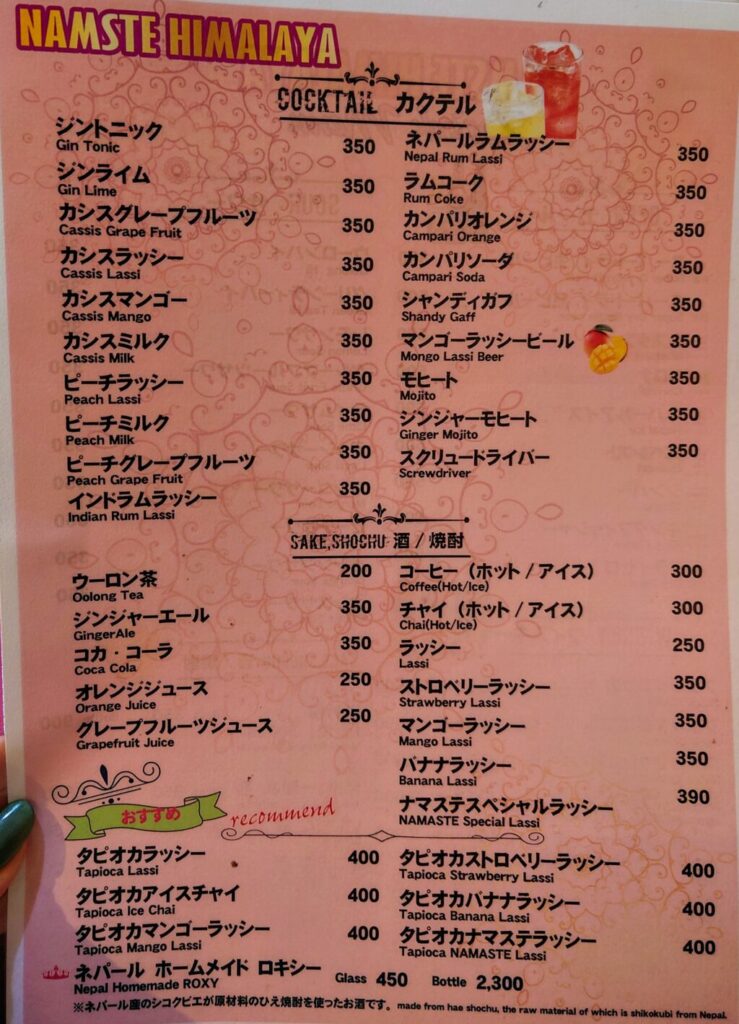 NAMSTE HIMALAYA
COCKTAIL カクテル
ジントニック 350
Gin Tonic
ジンライム 350
Gin Lime
カシスグレープフルーツ 350
Cassis Grape Fruit
カシスラッシー 350
Cassis Lassi
カシスマンゴー 350
Cassis Mango
カシスミルク 350
Cassis Milk
ピーチラッシー 350
Peach Lassi
ピーチミルク 350
Peach Milk
ピーチグレープフルーツ 350
Peach Grape Fruit
インドラムラッシー 350
Indian Rum Lassi
ネパールラムラッシー 350
Nepal Rum Lassi
ラムコーク 350
Rum Coke
カンパリオレンジ 350
Campari Orange
カンパリソーダ 350
Campari Soda
シャンディガフ 350
Shandy Gaff
マンゴーラッシービール 350
Mongo Lassi Beer
モヒート 350
Mojito
ジンジャーモヒート 350
Ginger Mojito
スクリュードライバー 350
Screwdriver
SAKE,SHOCHU 酒 / 焼酎
ウーロン茶 200
Oolong Tea
ジンジャーエール 350
GingerAle
コカ・コーラ 350
Coca Cola
オレンジジュース 250
Orange Juice
グレープフルーツジュース 250
Grapefruit Juice
コーヒー（ホット / アイス） 300
Coffee(Hot/Ice)
チャイ（ホット / アイス） 300
Chai(Hot/Ice)
ラッシー 250
Lassi
ストロベリーラッシー 350
Strawberry Lassi
マンゴーラッシー 350
Mango Lassi
バナナラッシー 350
Banana Lassi
ナマステスペシャルラッシー 390
NAMASTE Special Lassi
おすすめ recommend
タピオカラッシー 400
Tapioca Lassi
タピオカアイスチャイ 400
Tapioca Ice Chai
タピオカマンゴーラッシー 400
Tapioca Mango Lassi
タピオカストロベリーラッシー 400
Tapioca Strawberry Lassi
タピオカバナナラッシー 400
Tapioca Banana Lassi
タピオカナマステラッシー 400
Tapioca NAMASTE Lassi
ネパール ホームメイド ロキシー Glass 450 Bottle 2,300
Nepal Homemade ROXY
※ネパール座のシコクビエが原材料のひえ焼酎を使ったお酒です。made from hae shochu, the raw material of which is shikokubi from Nepal.